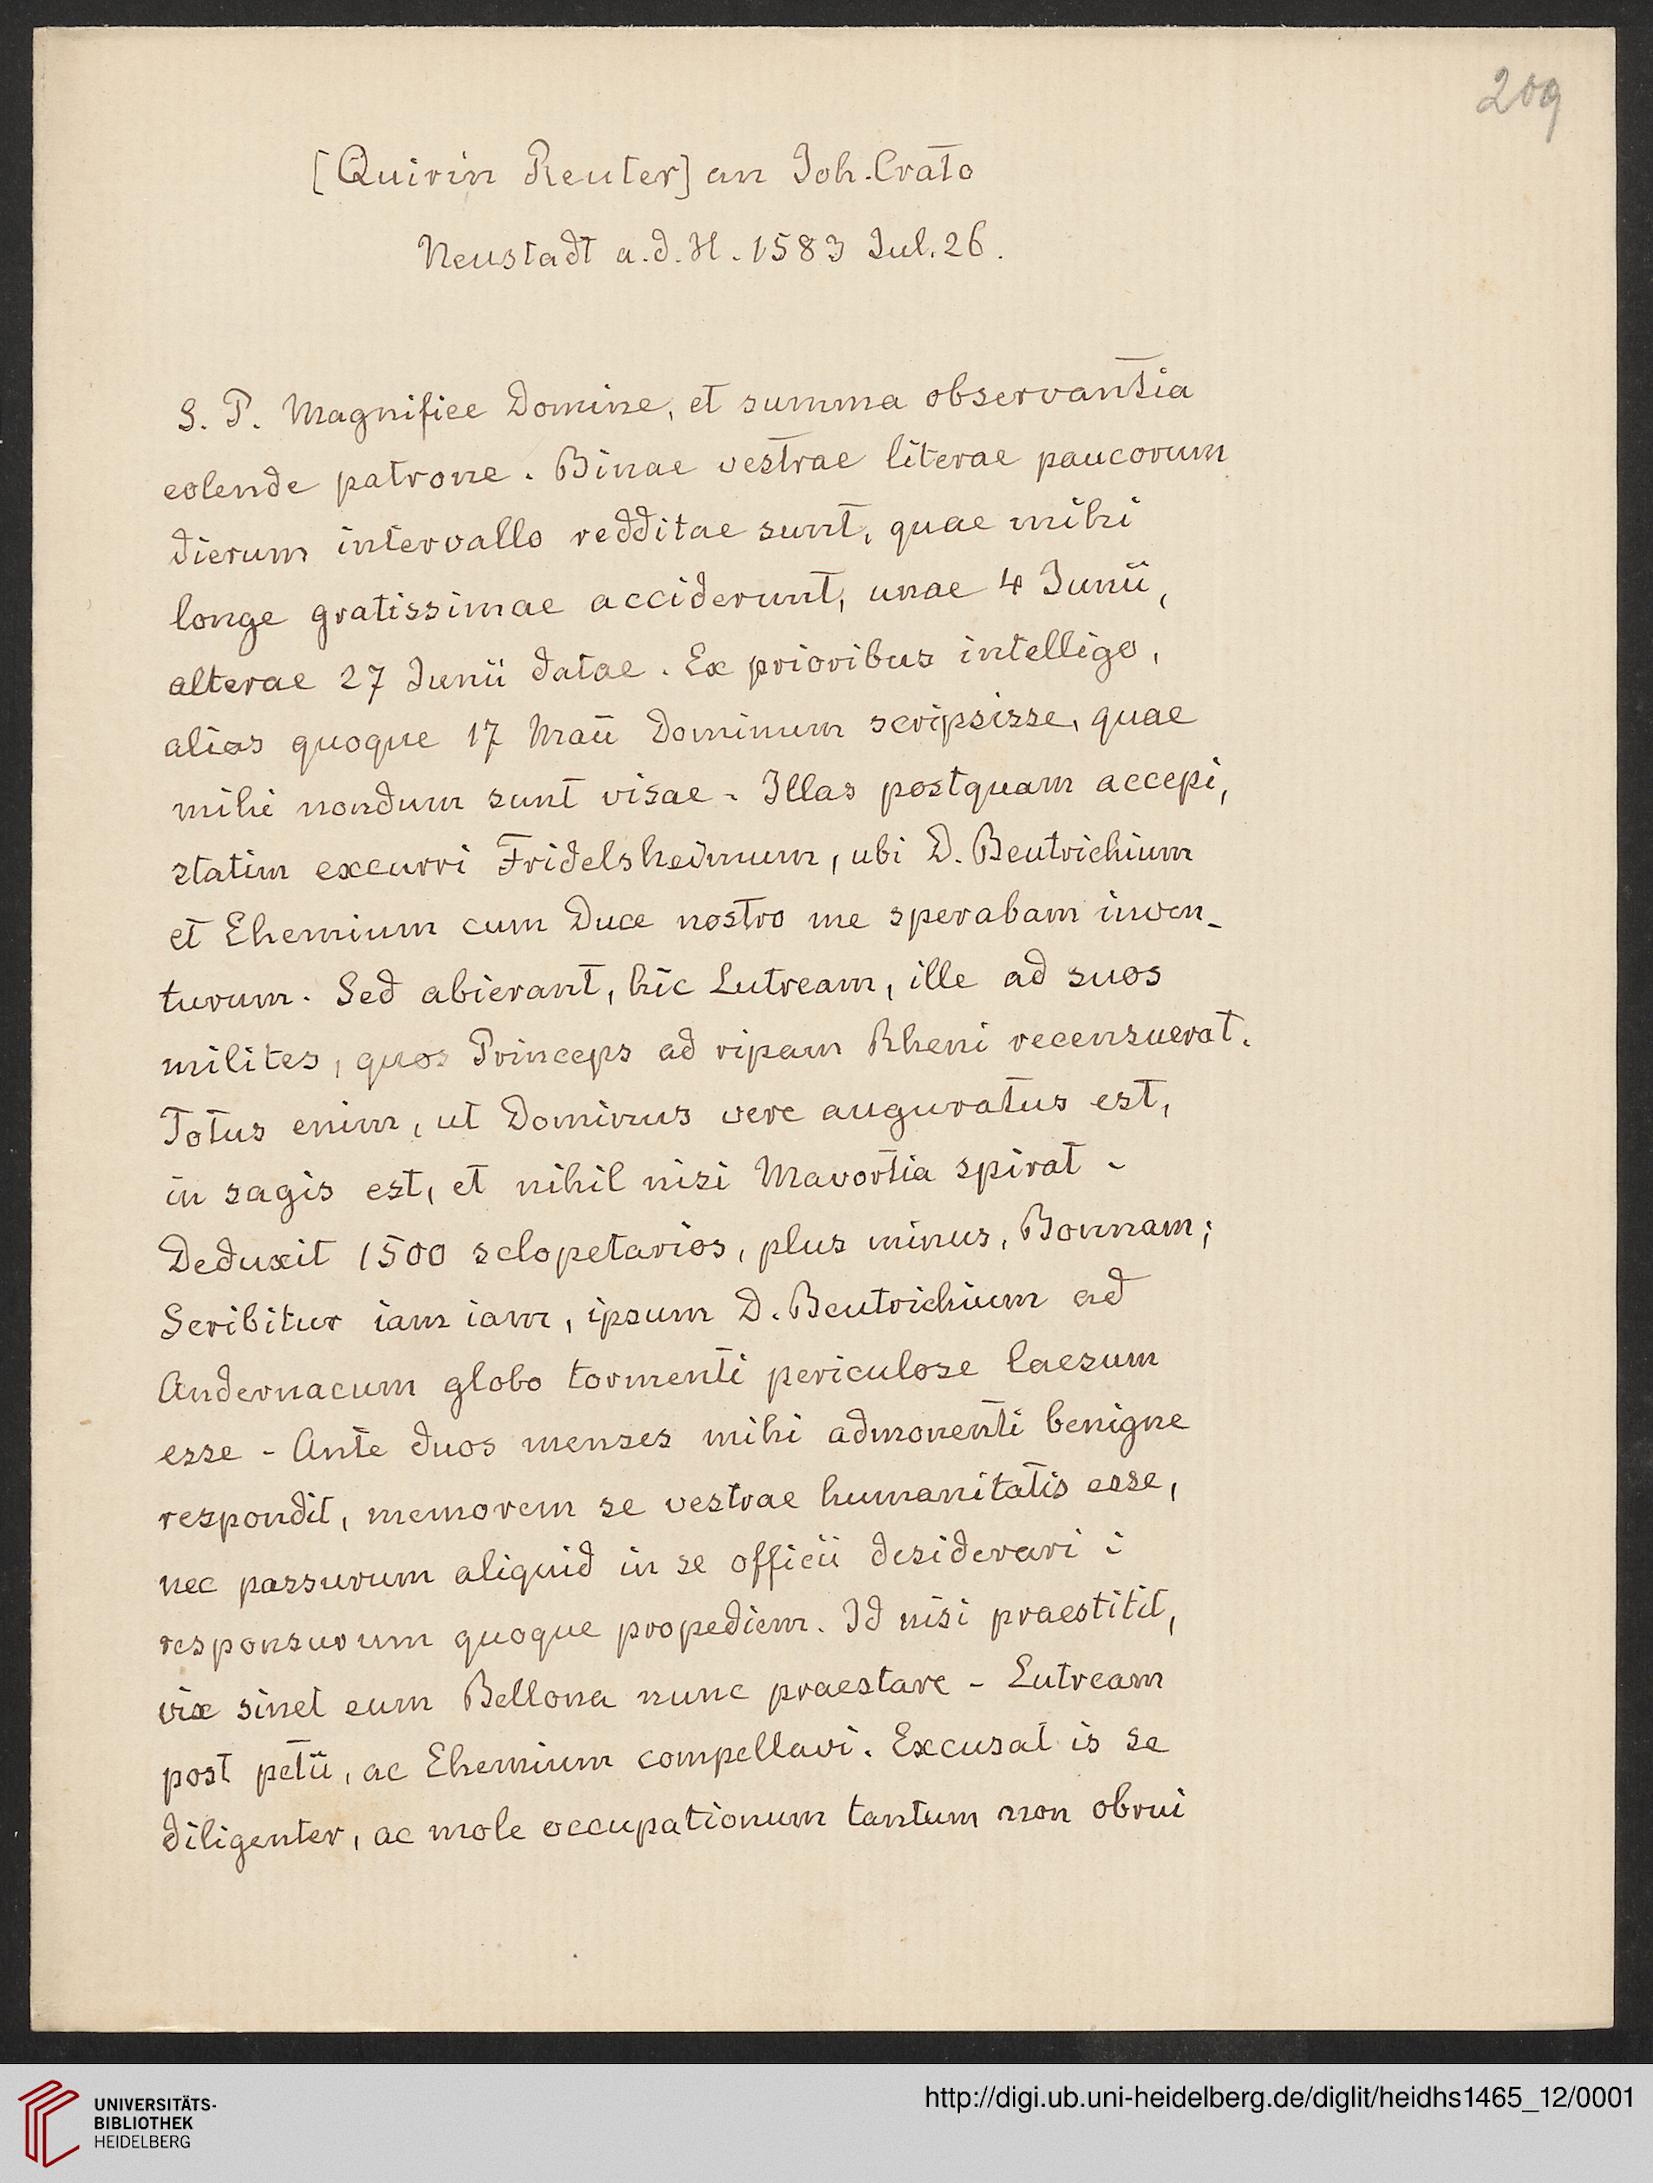 209
[Quirin Reuter] an Joh. Crato
Neustadt a.d.H. 1583 Jul. 26.
S. P. Magnifice Domine, et summa observantia
colende patrone. Binae vestrae literae paucorum
dierum intervallo redditae sunt, quae mihi
longe gratissimae acciderunt, unae 4 Junii,
alterae 27 Junii datae. Ex prioribus intelligo,
alias quoque 17 Maii Dominum scripsisse, quae
mihi nondum sunt visae. Illas postquam accepi,
statim excurri Fridelsheimum, ubi D. Beutrichium
et Ehemium cum Duce nostro me sperabam inven-
turum. Sed abierant, hic Lutream, ille ad suos
milites, quos Princeps ad ripam Rheni recensuerat.
Totus enim, ut Dominus vere auguratus est,
in sagis est, et nihil nisi Mavortia spirat.
Deduxit 1500 sclopetarios, plus minus, Bonnam;
Scribitur iam iam, ipsum D. Beutrichium ad
Andernacum globo tormenti periculose laesum
esse - Ante duos menses mihi admonenti benigne
respondit, memorem se vestrae humanitatis esse,
nec passurum aliquid in se officii desiderari :
responsurum quoque propediem. Id nisi praestitit,
vix sinet eum Bellona nunc praestare - Lutream
post petii, ac Ehemium compellavi. Excusat is se
diligenter, ac mole occupationum tantum non obrui
UNIVERSITÄTS-
BIBLIOTHEK
HEIDELBERG
http://digi.ub.uni-heidelberg.de/diglit/heidhs1465_12/0001